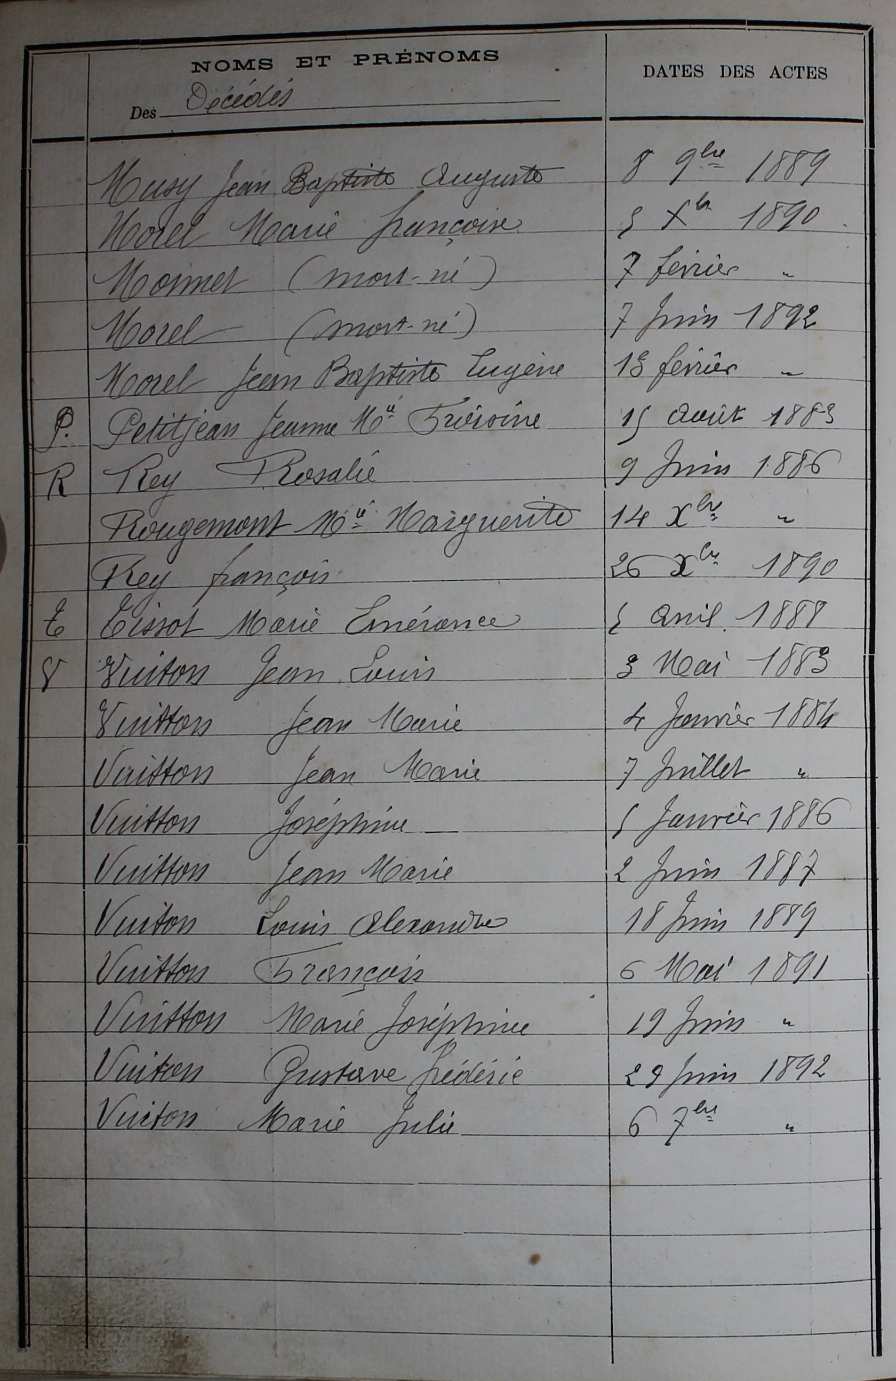 NOMS ET PRÉNOMS
Des Décédés
DATES DES ACTES
Musy Jean Baptiste Auguste 8 9bre 1889
Morel Marie françoise 5 Xbre 1890
(mort-né) 7 février "
Morel (mort-né) 7 Juin 1892
Morel Jean Baptiste Eugène 13 février "
P. Petitjean Jeanne Mie 15 Août 1883
R Rey Rosalie 9 Juin 1886
Rougemont Mie Marguerite 14 Xbre "
Rey françois 26 Xbre 1890
T Tissot Marie Emérance 5 Avril 1888
V Vuiton Jean Louis 3 Mai 1883
Vuitton Jean Marie 4 Janvier 1884
Vuitton Jean Marie 7 Juillet "
Vuitton Joséphine 5 Janvier 1886
Vuitton Jean Marie 2 Juin 1887
Vuiton Louis Alexandre 18 Juin 1889
Vuitton François 6 Mai 1891
Vuitton Marie Joséphine 19 Juin "
Vuiton Gustave frédéric 29 Juin 1892
Vuiton Marie Julie 6 7bre "